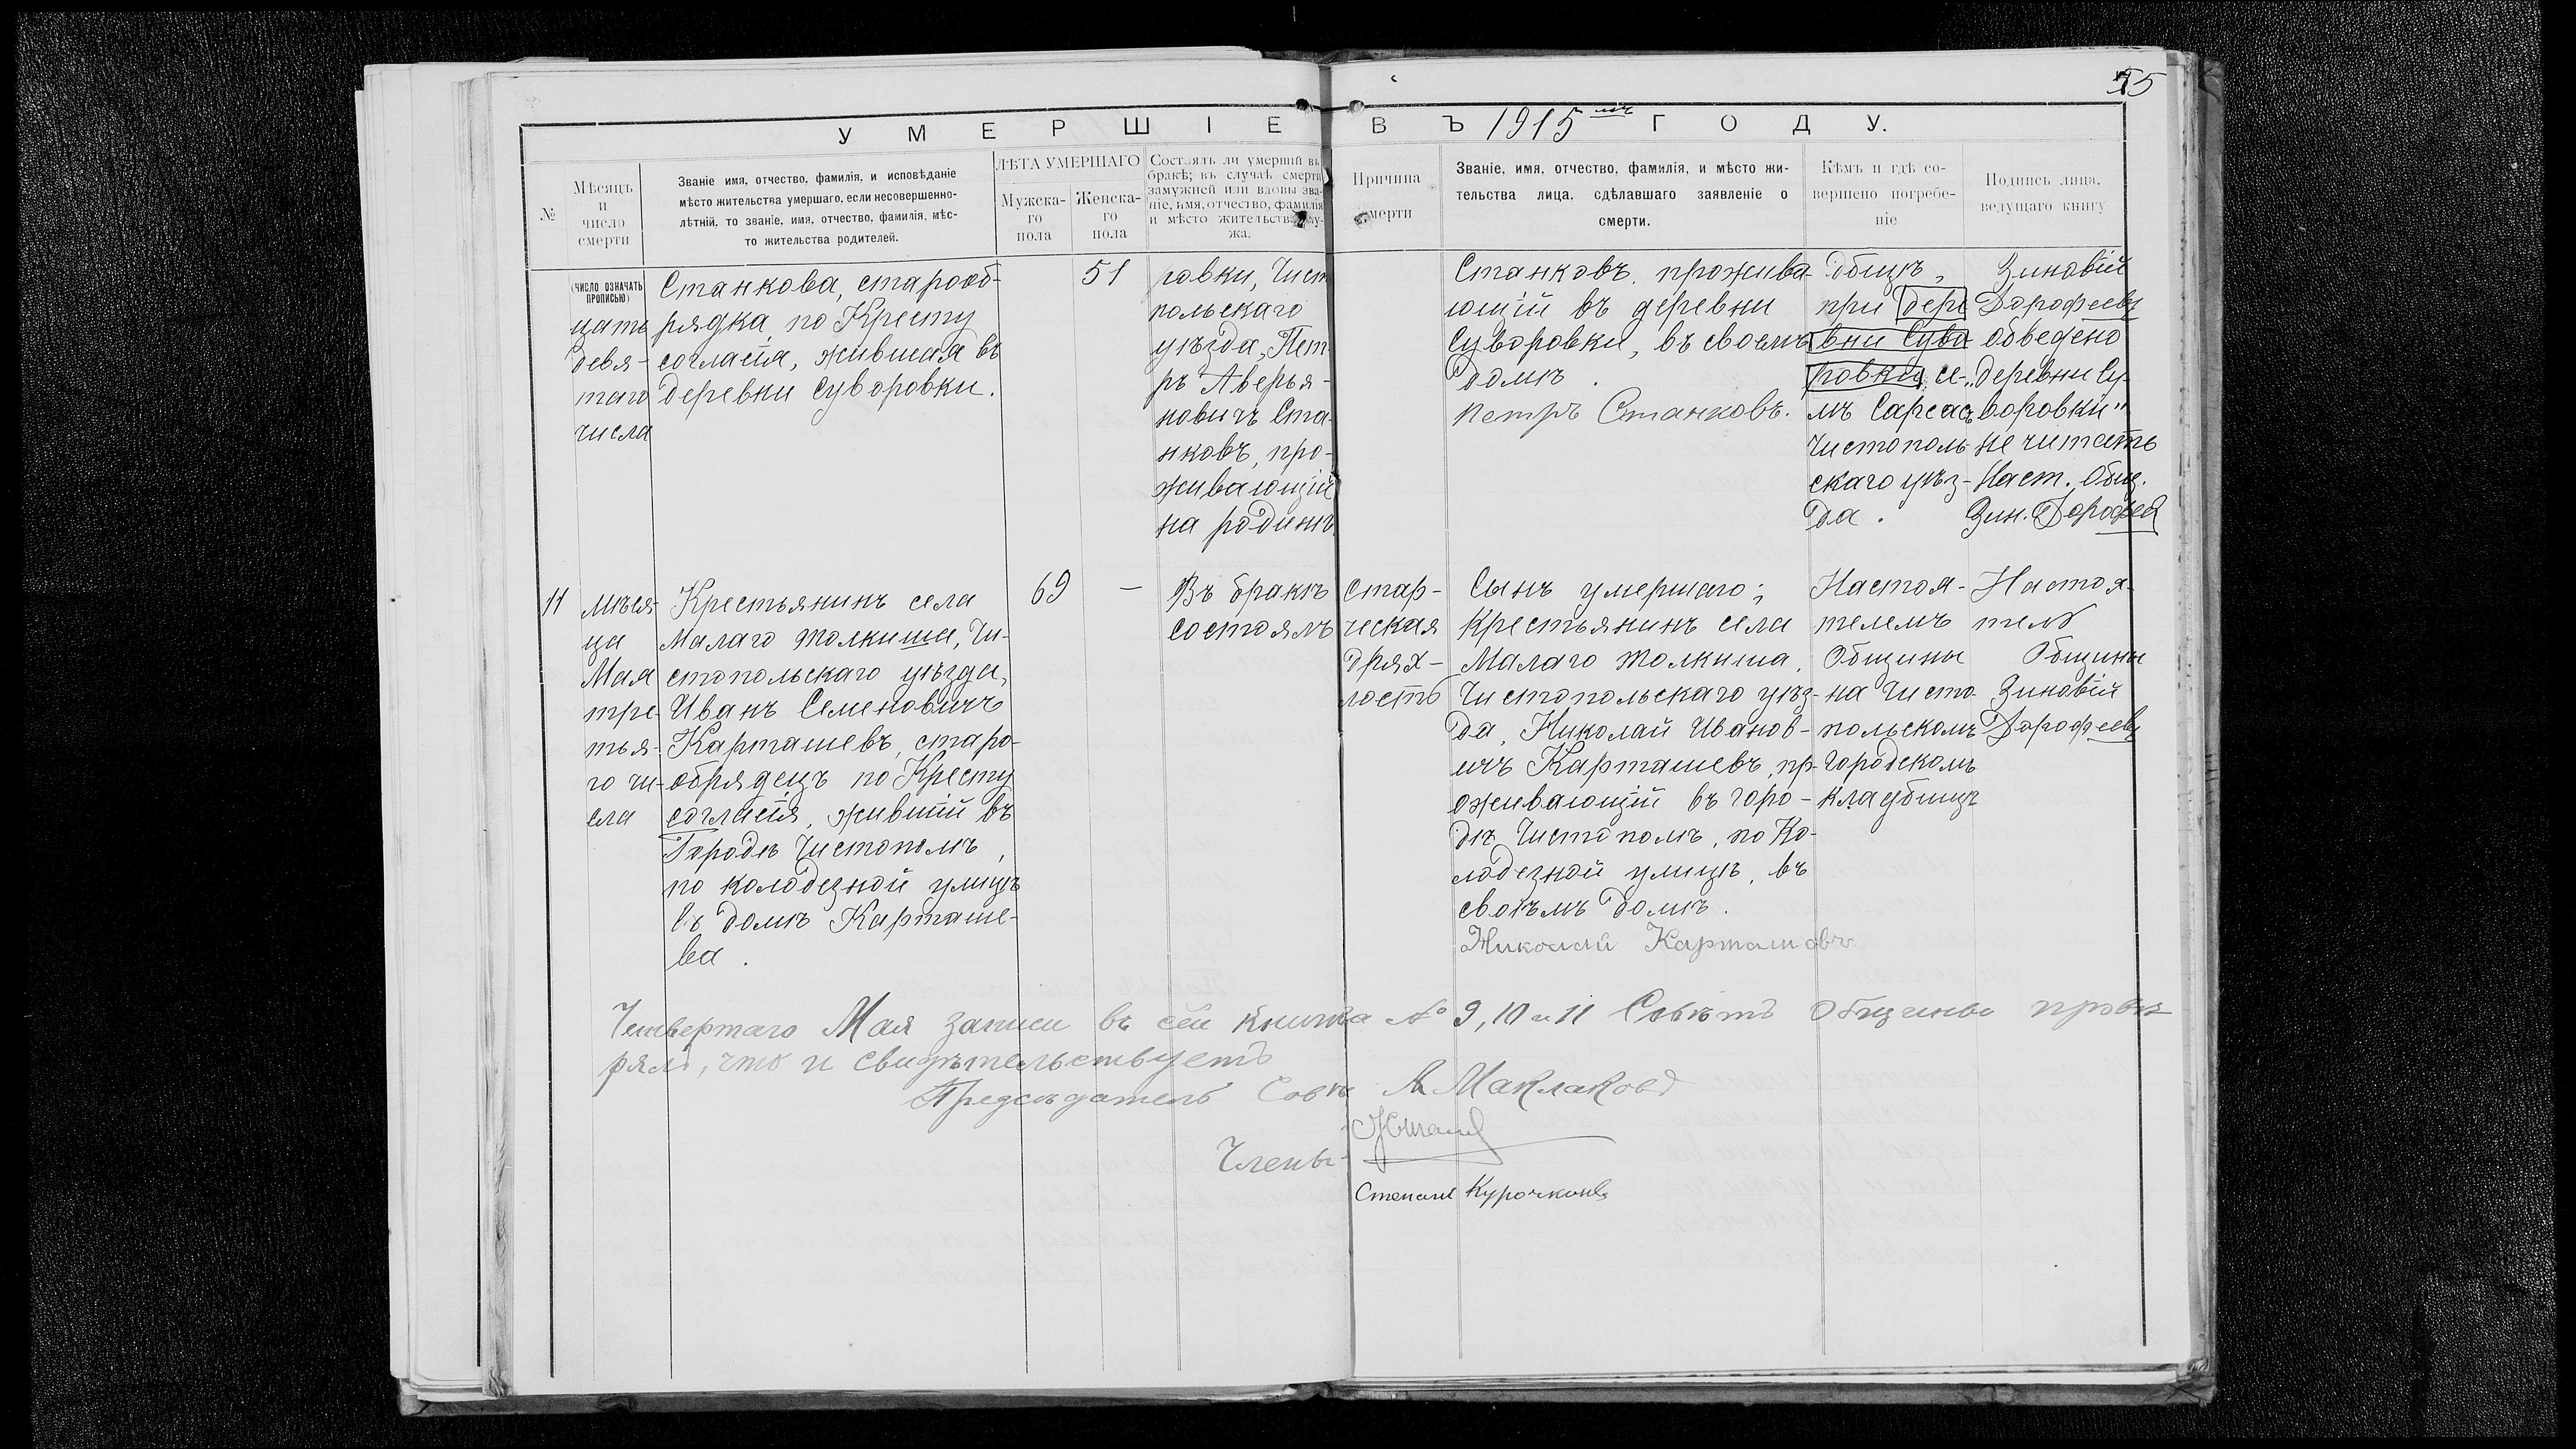 55
УМЕРШІЕ ВЪ 1915мъ ГОДУ.
№
Мѣсяцъ
и
число
смерти
Званіе имя, отчество, фамилія, и исповѣданіе
мѣсто жительства умершаго, если несовершенно-
лѣтній, то званіе, имя, отчество, фамилія, мѣс-
то жительства родителей.
ЛѢТА УМЕРШАГО
Мужска-
го
пола
Женска-
го
пола
Состоялъ ли умерший въ
бракѣ; въ случаѣ смерти
замужней или вдовы зва-
ніе, имя, отчество, фамилія
и мѣсто жительства му-
жа.
Причина
смерти
Званіе, имя, отчество, фамилія, и мѣсто жи-
тельства лица, сдѣлавшаго заявленіе о
смерти.
Кѣмъ и гдѣ со-
вершено погребе-
ніе
Подпись лица,
ведущаго книгу
(ЧИСЛО ОЗНАЧАТЬ
ПРОПИСЬЮ)
цать
девя-
таго
числа
Станкова, старооб-
рядка по Кресту
согласія, жившая въ
деревни Суворовки.
51
ровки, Чист
польскаго
уѣзда, Пет
ръ Аверья-
новичъ Ста-
нковъ, про-
живающій
на родинѣ
Станковъ, прожива-
ющій въ деревни
Суворовки, въ своемъ
домѣ.
Петръ Станковъ.
общинъ,
при дере
вни Суво
ровки, се-
лѣ Сарсасъ
Чистополь
скаго уѣз-
да.
Зиновій
Дорофеевъ
обведено
„деревни Су-
воровки"
не читать
Наст. Общ.
Зин. Дорофеев
11
мѣся-
ца
Мая
тре-
тья-
го чи-
сла
Крестьянинъ села
Малаго Толкиша, Чи-
стопольскаго уѣзда,
Иванъ Семеновичъ
Карташевъ, старо-
обрядецъ по Кресту
согласія, жившій въ
Городѣ Чистополѣ,
по колодезной улицѣ
въ домѣ Карташе-
ва.
69
—
Въ бракѣ
состоялъ
Стар-
ческая
дрях-
лость
Сынъ умершаго;
Крестьянинъ села
Малаго Толкиша,
Чистопольскаго уѣз-
да, Николай Иванов-
ичъ Карташевъ, пр-
оживающій въ горо-
дѣ Чистополѣ, по Ко-
лодезной улицѣ, въ
своѣмъ домѣ.
Николай Карташовъ
Настоя-
телемъ
Общины
на Чисто
польскомъ
Городскомъ
кладбищѣ
Настоя-
тель
Общины
Зиновій
Дорофеевъ
Четвертаго Мая записи въ сей книгѣ № 9, 10 и 11 Совѣтъ Общины провѣ
рялъ, что и свидѣтельствуетъ
Предсѣдатель Совѣ А Маклаковъ
Члены-
Степанъ Курочкинъ